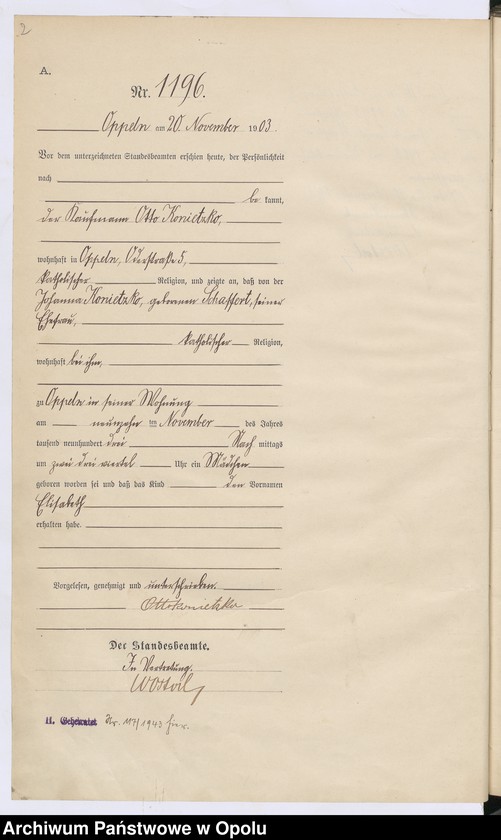 2
A.
Nr. 1196.
Oppeln am 20. November 1903.
Vor dem unterzeichneten Standesbeamten erschien heute, der Persönlichkeit
nach
be kannt,
der Kaufmann Otto Konietzko,
wohnhaft in Oppeln, Oderstraße 5,
katholischer Religion, und zeigte an, daß von der
Johanna Konietzko, geborenen Schaffert, seiner
Ehefrau,
katholischer Religion,
wohnhaft bei ihm,
zu Oppeln in seiner Wohnung
am neunzehn ten November des Jahres
tausend neunhundert drei Nach mittags
um zwei drei viertel Uhr ein Mädchen
geboren worden sei und daß das Kind den Vornamen
Elisabeth
erhalten habe.
Vorgelesen, genehmigt und unterschrieben.
Otto Konietzko
Der Standesbeamte.
In Vertretung.
H. Geheiratet Nr. 1943 hier.
Archiwum Państwowe w Opolu